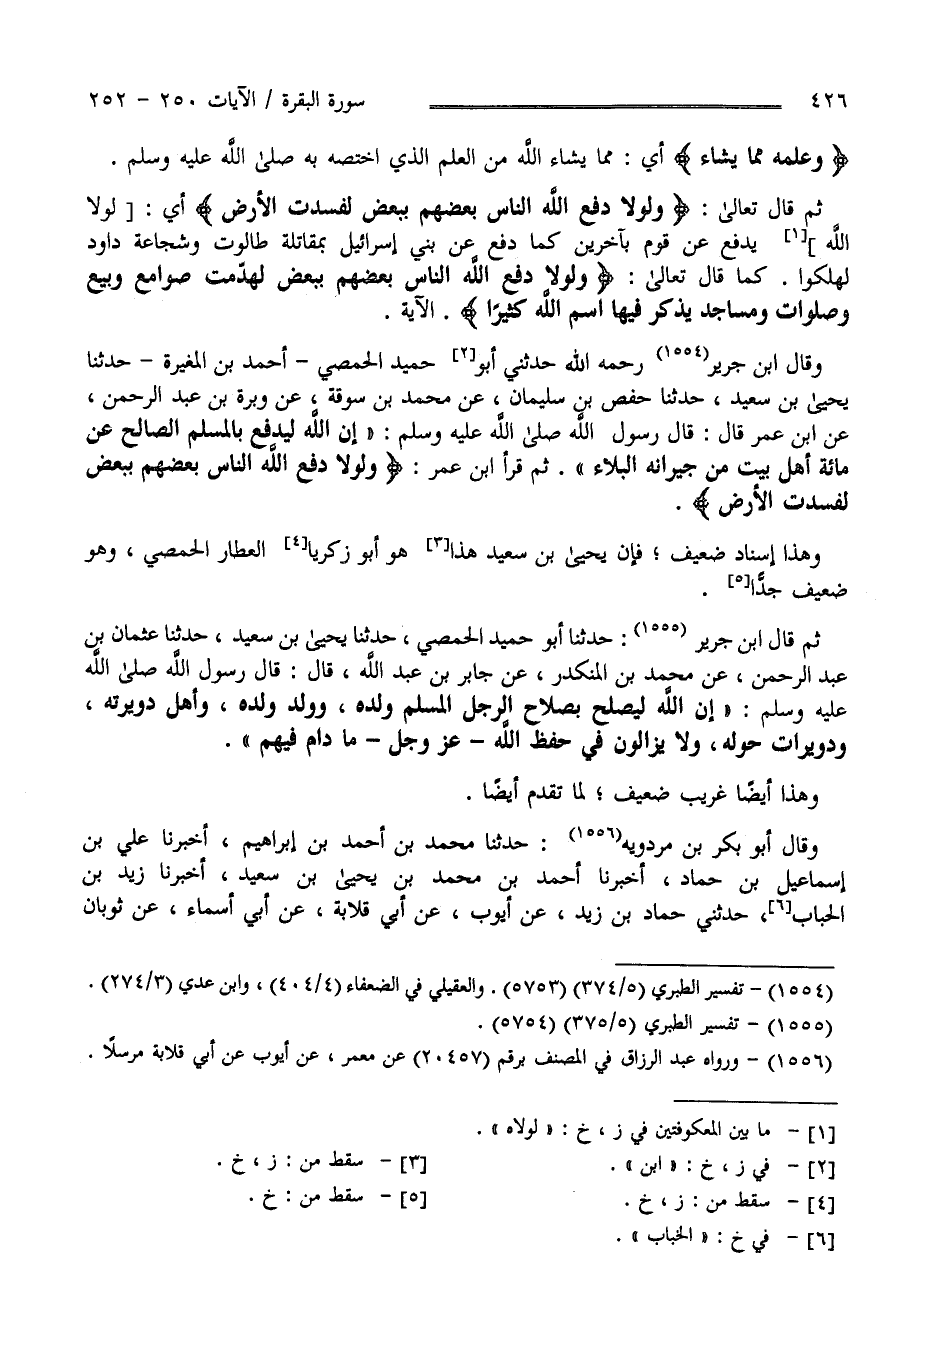 ٤٢٦ سورة البقرة / الآيات ٢٥٠ - ٢٥٢
﴿ وعلمه مما يشاء ﴾ أي : مما يشاء اللَّه من العلم الذي اختصه به صلىٰ اللَّه عليه وسلم .
ثم قال تعالىٰ : ﴿ ولولا دفع اللَّه الناس بعضهم ببعض لفسدت الأرض ﴾ أي : [ لولا
اللَّه ][١] يدفع عن قوم بآخرين كما دفع عن بني إسرائيل بمقاتلة طالوت وشجاعة داود
لهلكوا . كما قال تعالىٰ : ﴿ ولولا دفع اللَّه الناس بعضهم ببعض لهدّمت صوامع وبيع
وصلوات ومساجد يذكر فيها اسم اللَّه كثيرًا ﴾ . الآية .
وقال ابن جرير(١٥٥٤) رحمه الله حدثني أبو[٢] حميد الحمصي - أحمد بن المغيرة - حدثنا
يحيىٰ بن سعيد ، حدثنا حفص بن سليمان ، عن محمد بن سوقة ، عن وبرة بن عبد الرحمن ،
عن ابن عمر قال : قال رسول اللَّه صلىٰ اللَّه عليه وسلم : « إن اللَّه ليدفع بالمسلم الصالح عن
مائة أهل بيت من جيرانه البلاء » . ثم قرأ ابن عمر : ﴿ ولولا دفع اللَّه الناس بعضهم ببعض
لفسدت الأرض ﴾ .
وهذا إسناد ضعيف ؛ فإن يحيىٰ بن سعيد هذا[٣] هو أبو زكريا[٤] العطار الحمصي ، وهو
ضعيف جدًّا[٥] .
ثم قال ابن جرير (١٥٥٥) : حدثنا أبو حميد الحمصي ، حدثنا يحيىٰ بن سعيد ، حدثنا عثمان بن
عبد الرحمن ، عن محمد بن المنكدر ، عن جابر بن عبد اللَّه ، قال : قال رسول اللَّه صلىٰ اللَّه
عليه وسلم : « إن اللَّه ليصلح بصلاح الرجل المسلم ولده ، وولد ولده ، وأهل دويرته ،
ودويرات حوله ، ولا يزالون في حفظ اللَّه - عز وجل - ما دام فيهم » .
وهذا أيضًا غريب ضعيف ؛ لما تقدم أيضًا .
وقال أبو بكر بن مردويه(١٥٥٦) : حدثنا محمد بن أحمد بن إبراهيم ، أخبرنا علي بن
إسماعيل بن حماد ، أخبرنا أحمد بن محمد بن يحيىٰ بن سعيد ، أخبرنا زيد بن
الحباب[٦]، حدثني حماد بن زيد ، عن أيوب ، عن أبي قلابة ، عن أبي أسماء ، عن ثوبان
(١٥٥٤) - تفسير الطبري (٣٧٤/٥) (٥٧٥٣) . والعقيلي في الضعفاء (٤٠٤/٤) ، وابن عدي (٢٧٤/٣) .
(١٥٥٥) - تفسير الطبري (٣٧٥/٥) (٥٧٥٤) .
(١٥٥٦) - ورواه عبد الرزاق في المصنف برقم (٢٠٤٥٧) عن معمر ، عن أيوب عن أبي قلابة مرسلًا .
[١] - ما بين المعكوفتين في ز ، خ : « لولاه » .
[٢] - في ز ، خ : « ابن » . [٣] - سقط من : ز ، خ .
[٤] - سقط من : ز ، خ . [٥] - سقط من : خ .
[٦] - في خ : « الخباب » .